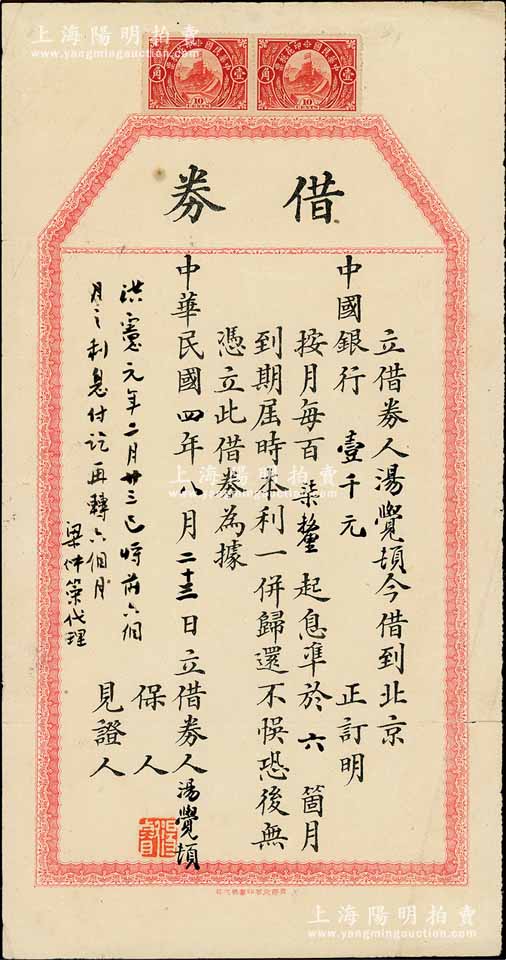 上海陽明拍賣
www.yangmingauction.com
中華民國印花稅票
壹角
10
CENTS
中華民國印花稅票
壹角
10
CENTS
借券
立借券人湯覺頓今借到北京
中國銀行 壹千元 正訂明
按月每百柒釐起息準於六箇月
到期屆時本利一併歸還不悞恐後無
憑立此借券為據
中華民國四年八月二十三日立借券人湯覺頓
保人
見證人
洪憲元年二月廿三巳時前六個
月之利息付訖再轉六個月
梁仲策代理
上海陽明拍賣
www.yangmingauction.com
上海陽明拍賣
www.yangmingauction.com